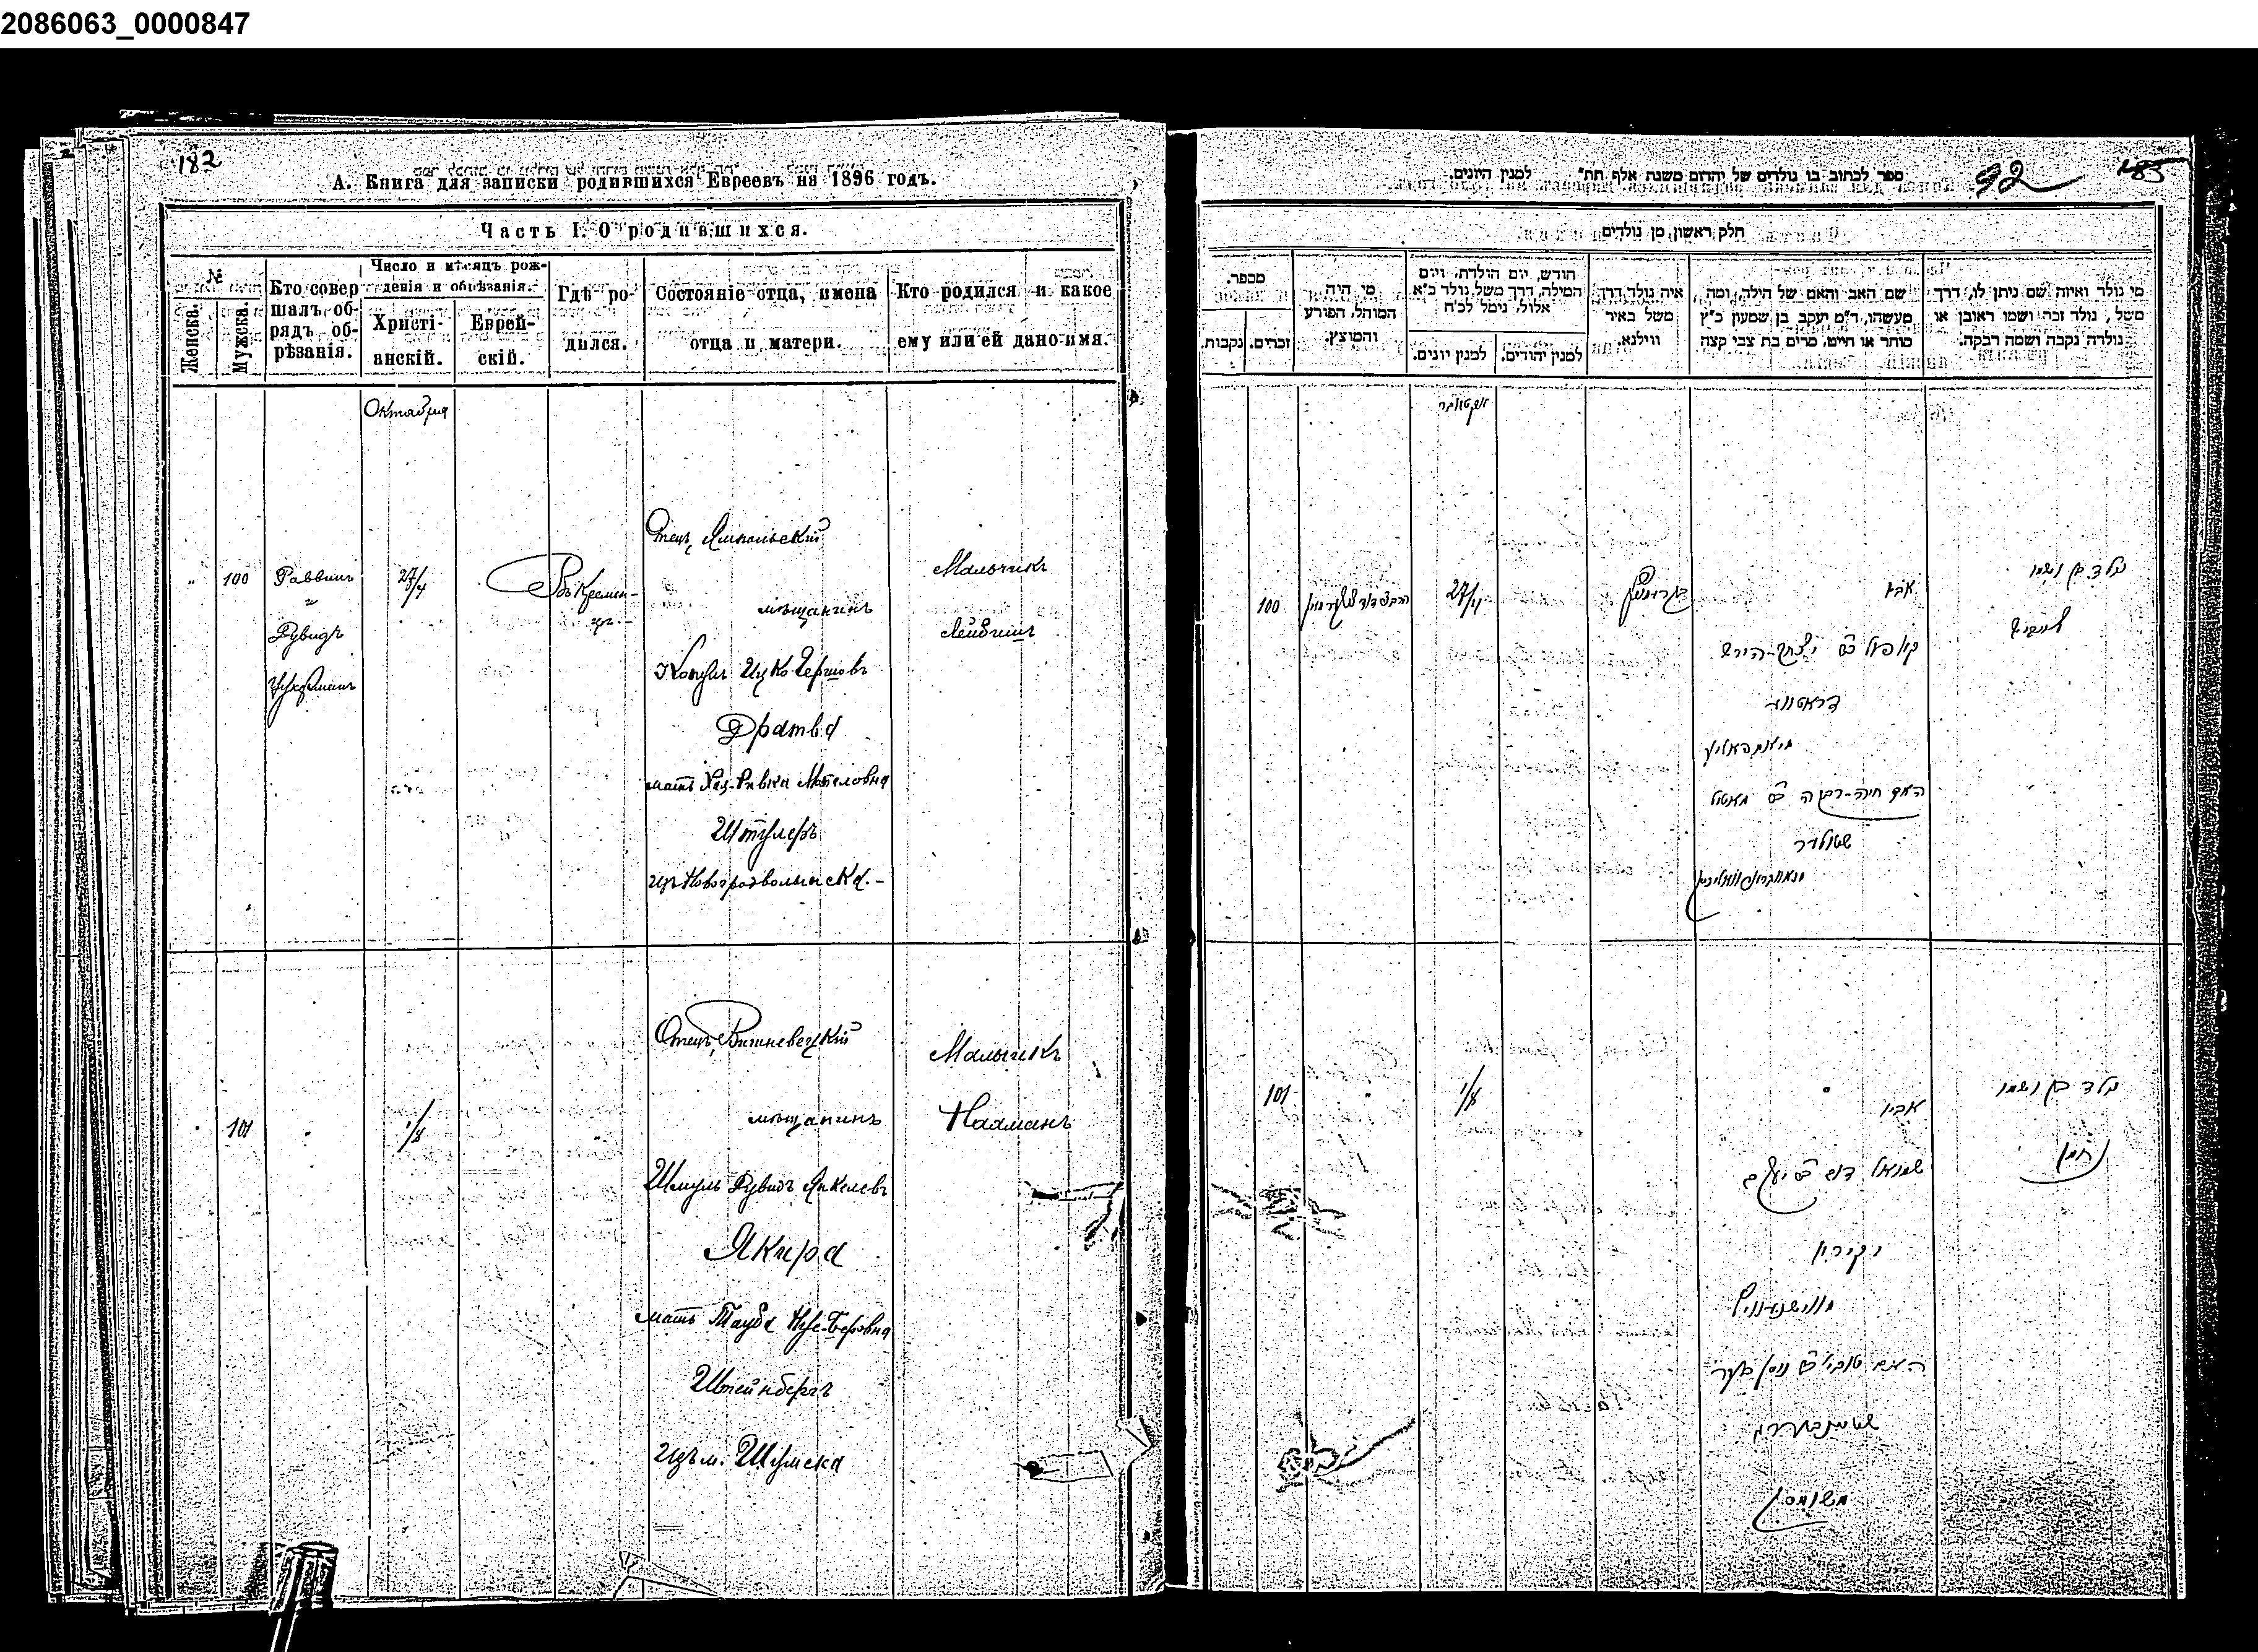 2086063_0000847
182
А. Книга для записки родившихся Евреевъ на 1896 годъ.
Часть I. О родившихся.
№
Женска.
Мужска.
Кто совер
шалъ об-
рядъ об-
рѣзанія.
Число и мѣсяцъ рож-
денія и обрѣзанія.
Христі-
анскій.
Еврей-
скій.
Гдѣ ро-
дился.
Состояніе отца, имена
отца и матери.
Кто родился и какое
ему или ей дано имя.
Октября
100
Раввинъ
и
Рувидъ
27/4
Въ Кремен-
цѣ
Отецъ Ямпольскій
мѣщанинъ
Ицко Гершовъ
Дратва
мать Хая-Ривка Мотеловна
Штулеръ
изъ Новоградволынска.-
Мальчикъ
Лейбишъ
101
1/8
Отецъ Вишневецкій
мѣщанинъ
Шмуль Рувидъ Янкелевъ
Якира
мать Тауба Нусе-Беровна
Штейнбергъ
изъ м. Шумска
Мальчикъ
Нахманъ
ספר לכתוב בו נולדים של יהדום משנת אלף תת" למנין היונים.
92
185
חלק ראשון מן נולדים
מספר.
נקבות.
זכרים.
מי היה
המוהל, הפורע
והמוצץ.
חודש, יום הולדת, ויום
המילה, דרך משל נולד כ"א
אלול, נימל לכ"ח
למנין יונים.
למנין יהודים.
איה נולד דרך
משל באיר
ווילנא.
שם האב והאם של הילד, ומה
מעשהו, ד"מ יעקב בן שמעון כ"ץ
סוחר או חייט, מרים בת צבי קצה
מי נולד ואיזה שם ניתן לו, דרך
משל, נולד זכר ושמו ראובן או
נולדה נקבה ושמה רבקה.
אקטאבר
100
27/4
אביו
יצחק-הירש
דראטווא
האם חיה-רבקה מאטל
שטולער
נולד בן ושמו
לייביש
101
1/8
אביו
שמואל דוד יעקב
יקירא
שטיינבערג
משומסק
נולד בן ושמו
נחמן